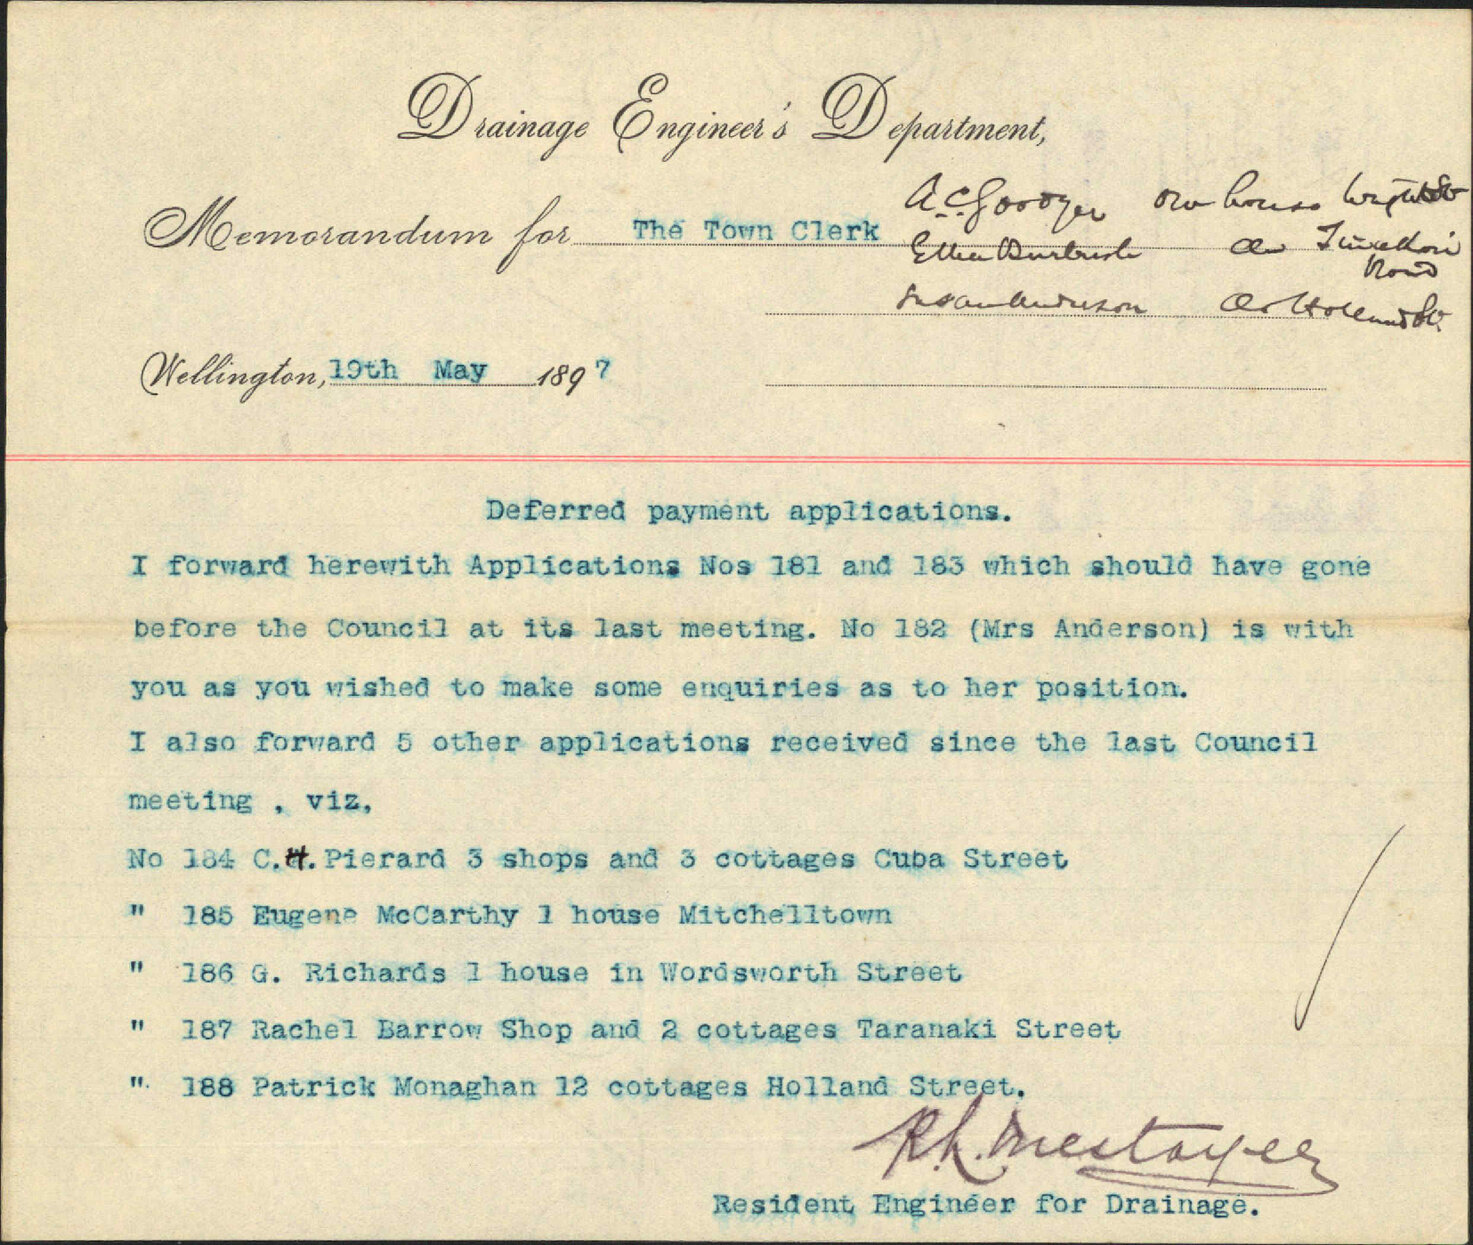 Drainage Engineer's Department,
Memorandum for The Town Clerk
A.C. Goodger One house Wright St
Ellen Burbush do Tinakori
Road
Susan Anderson do Holland St.
Wellington, 19th May 1897
Deferred payment applications.
I forward herewith Applications Nos 181 and 183 which should have gone
before the Council at its last meeting. No 182 (Mrs Anderson) is with
you as you wished to make some enquiries as to her position.
I also forward 5 other applications received since the last Council
meeting , viz,
No 184 C.H. Pierard 3 shops and 3 cottages Cuba Street
" 185 Eugene McCarthy 1 house Mitchelltown
" 186 G. Richards 1 house in Wordsworth Street
" 187 Rachel Barrow Shop and 2 cottages Taranaki Street
" 188 Patrick Monaghan 12 cottages Holland Street.
R.L. Mestayer
Resident Engineer for Drainage.